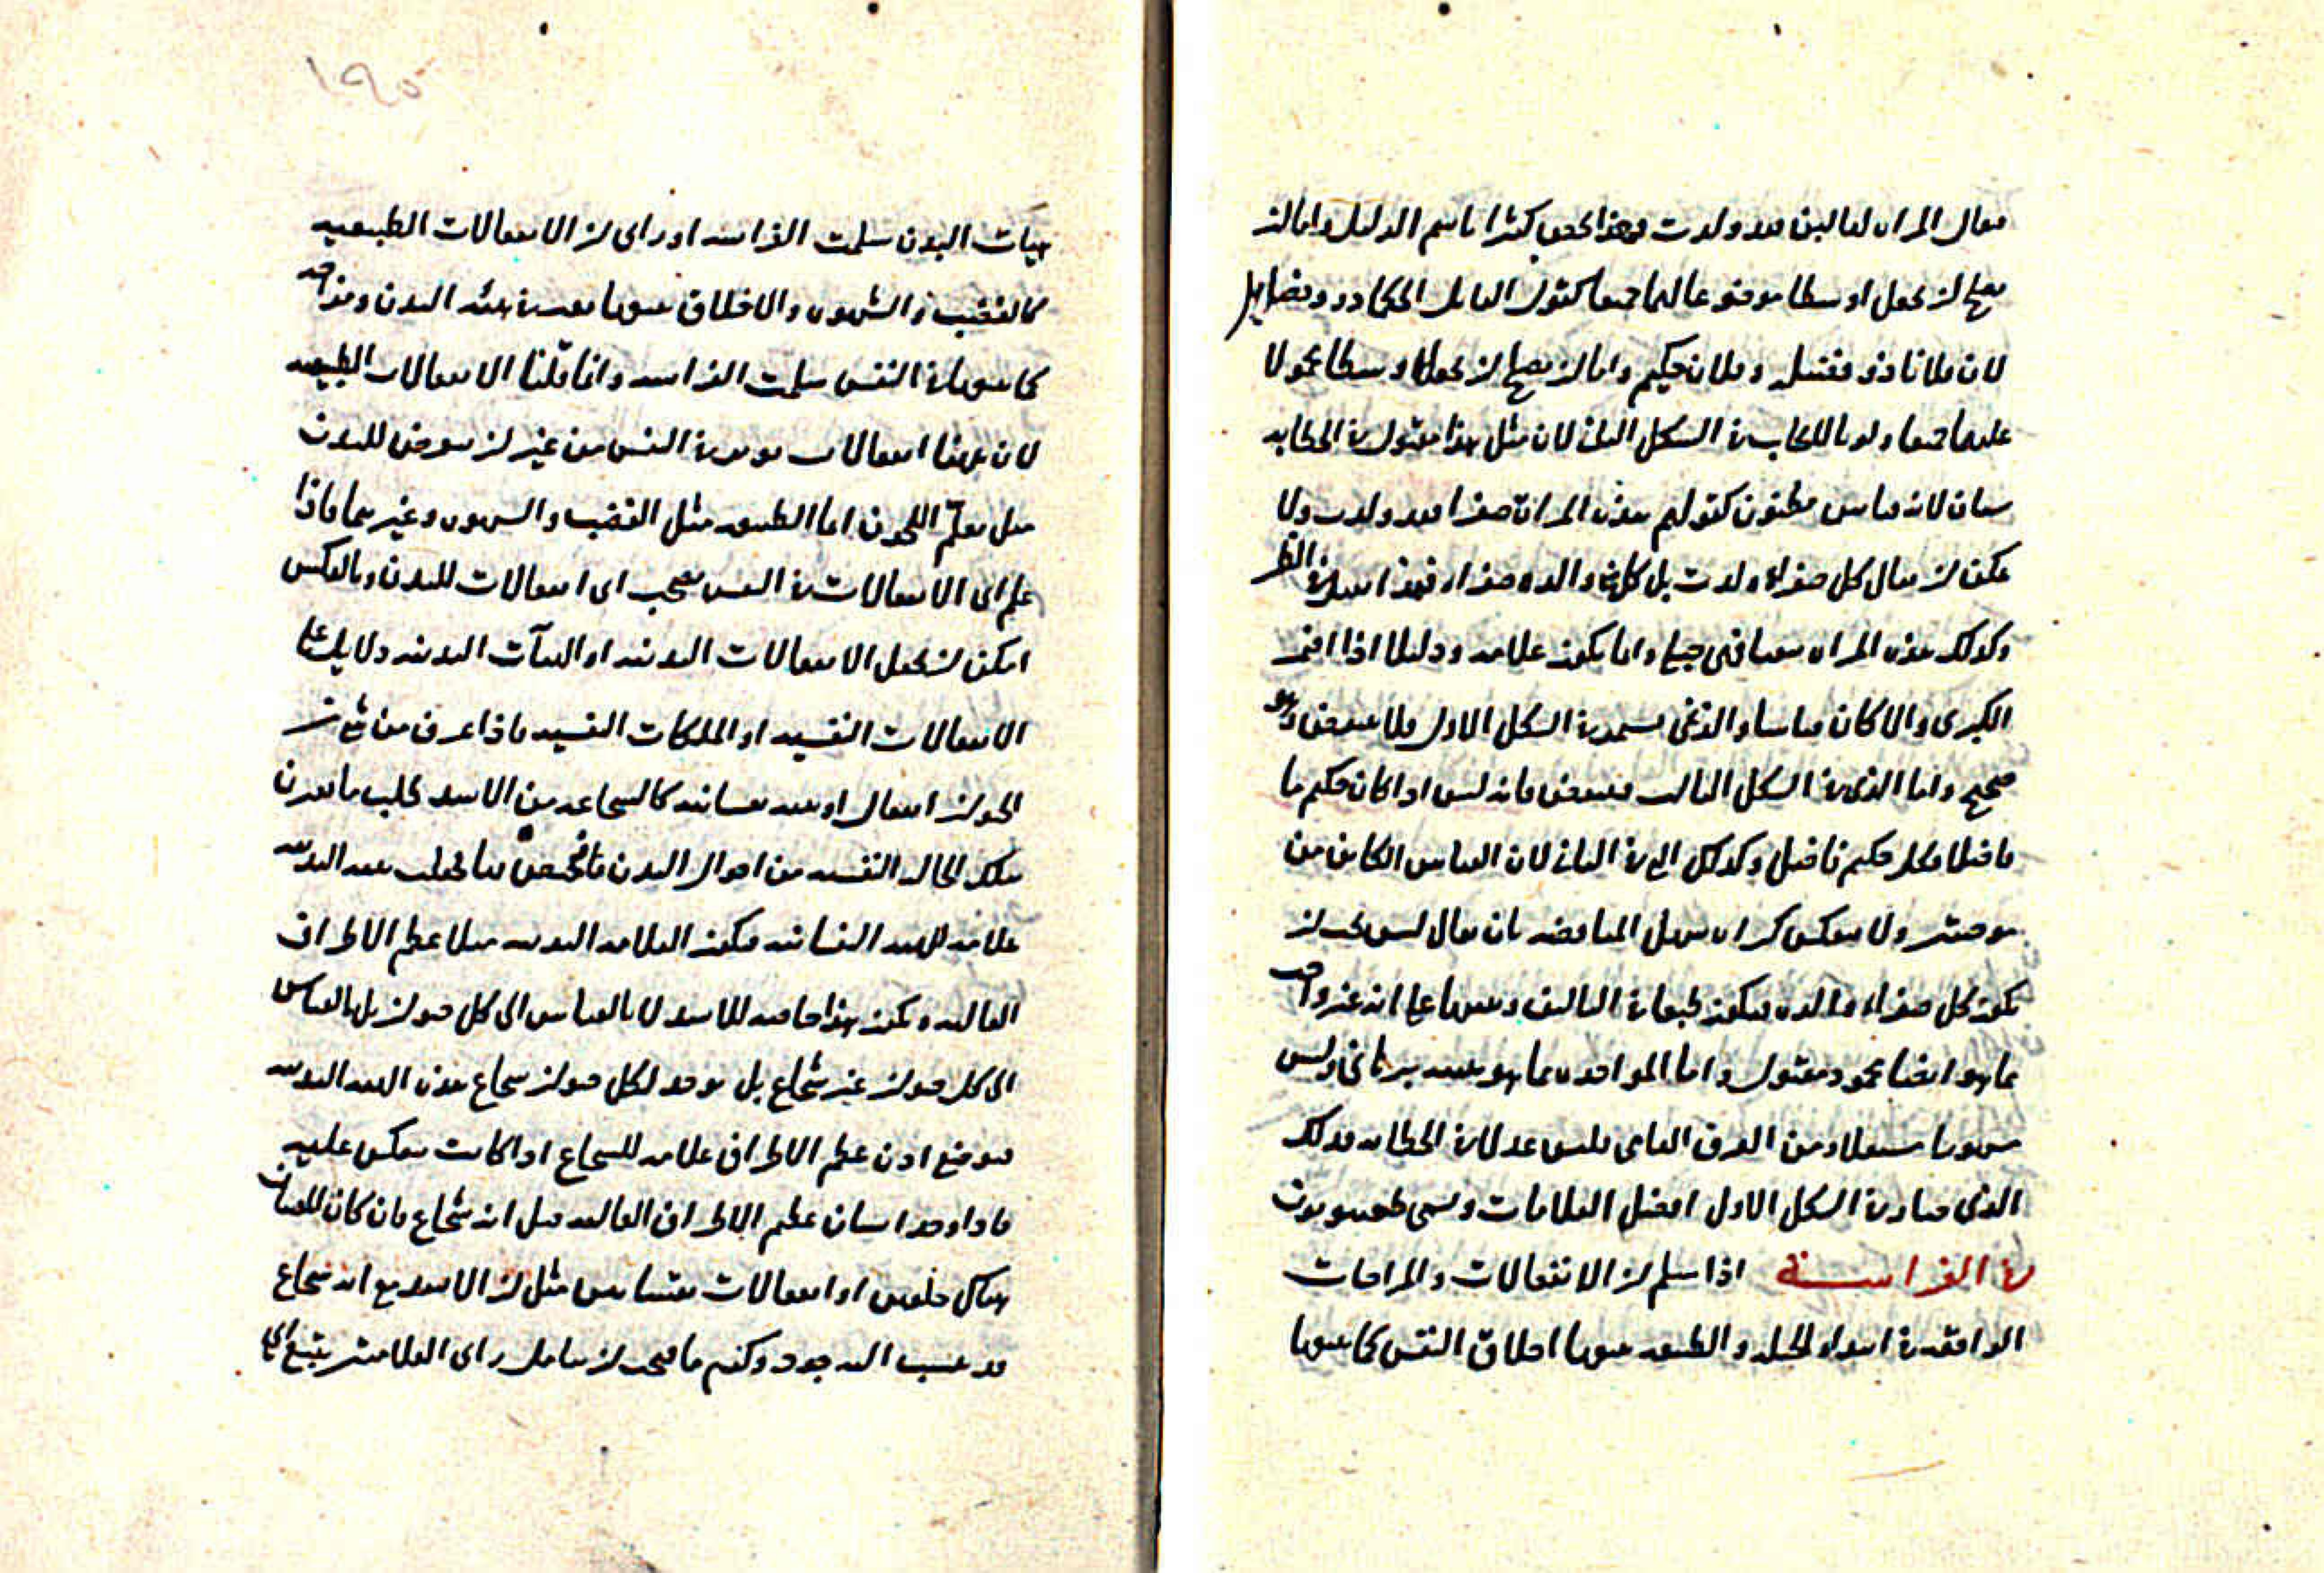 فيقال المرأة لها لبن فقد ولدت وهذا يخص كثيرا باسم الدليل واما ان
يصلح ان يجعل اوسطا موضوعا لهما جميعا كقول القايل الحكما ذوو فضايل
لان فلانا ذو فضيلة وفلان حكيم واما ان يصلح ان يجعل اوسطا محمولا
عليهما جميعا ولو بالايجاب في الشكل الثاني لان مثل هذا مقبول في الخطابة
لانه قياس مظنون كقولهم هذه المرأة صفرا فقد ولدت ولا
يمكن ان يقال كل صفراء ولدت بل كل والدة صفراء فهذا
وكذلك هذه المرأة واما يكون علامة ودليلا اذا اضمر
الكبرى والا كان قياسا والذي يستمر في الشكل الاول فلا ينتقض وهو
صحيح واما الذي في الشكل الثالث فينتقض فانه ليس اذا كان حكيم ما
فاضلا فكل حكيم فاضل وكذلك الذي في الثاني لان القياس الكاين من
موجبتين ولا ينعكس كبراه سهل المناقضة بان يقال ليس يجب ان
يكون كل صفراء والدة
بما هو ايضا محمود مقبول واما المواخذة بما هو برهاني وليس
مشهورا مستعملا ومن العرف العامي فليس عدلا في الخطابة فذلك
الذي صار في الشكل الاول افضل العلامات ويسمى
في الفراسة اذا سلم ان الانفعالات والمزاجات
الواقعة في ابتداء الجبلة والطبيعة يتبعها اخلاق النفس كما يتبعها
١٩٥
هيات البدن سلمت الفراسة اورأى ان الانفعالات الطبيعية
كالغضب والشهوة والاخلاق يتبعها تغير في هيئة البدن ومزاجه
كما يتبعها في النفس سلمت الفراسة وانما قلنا الانفعالات الطبيعية
لان هاهنا انفعالات توجد في النفس من غير ان تعرض للبدن
مثل تعلم اللحون اما الطبيعية مثل الغضب والشهوة وغيرهما فاذا
علم اى الانفعالات في النفس يصحب اى انفعالات للبدن وبالعكس
امكن ان يجعل الانفعالات البدنية او الهيآت البدنية دلايل على
الانفعالات النفسية او الملكات النفسية فاذا عرف من شى من
الحيوان انفعال او هيئة نفسانية كالشجاعة من الاسد طلب ما يقرن
تلك الحال النفسية من احوال البدن مما يختص بها فجعلت هيئة البدنية
علامة للهيئة النفسانية فيكون العلامة البدنية مثلا عظم الاطراف
العالية ويكون هذا خاصة للاسد لا بالقياس الى كل حيوان بل بالقياس
الى كل حيوان غير شجاع بل يوجد لكل حيوان شجاع هذه الهيئة البدنية
فيوضع اذن عظم الاطراف علامة للشجاع اذا كانت تنعكس عليه
فاذا وجد انسان عظيم الاطراف العالية قيل انه شجاع فان كان للحيوان
هناك خلقين او انفعالات نفسانيين مثل ان الاسد مع انه شجاع
قد ينسب اليه جود وكرم فيجب ان يتامل اى العلامتين يتبع اى